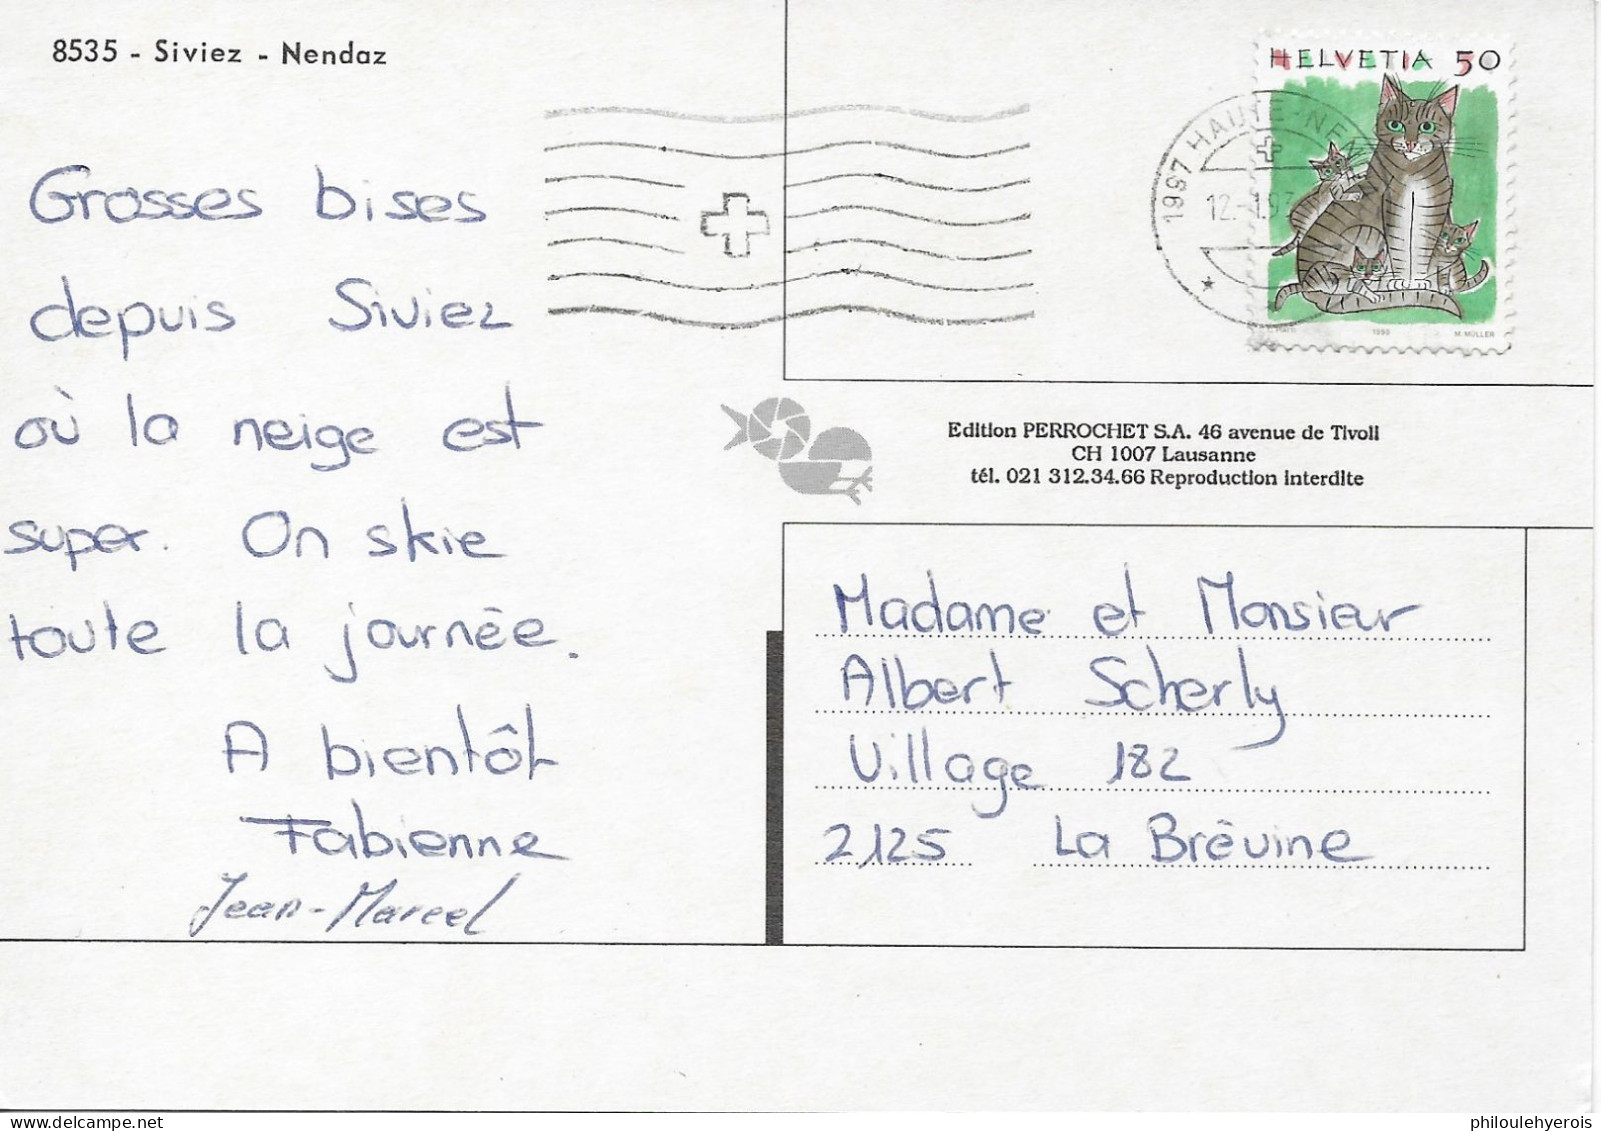 8535 - Siviez - Nendaz
HELVETIA 50
1997 HAUTE-NEN
12.-1.97
1990
M. MÜLLER
Grosses bises
depuis Siviez
où la neige est
super. On skie
toute la journée.
A bientôt
Fabienne
Jean-Marcel
Edition PERROCHET S.A. 46 avenue de Tivoli
CH 1007 Lausanne
tél. 021 312.34.66 Reproduction interdite
Madame et Monsieur
Albert Scherly
Village 182
2125 La Brévine
philoulehyerois